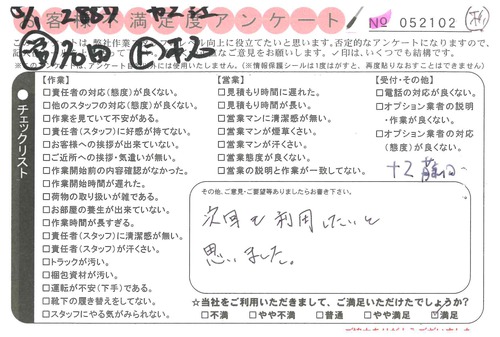 お客様不満足度アンケート No 052102
【作業】
□責任者の対応(態度)が良くない。
□他のスタッフの対応(態度)が良くない。
□作業を見ていて不安がある。
□責任者(スタッフ)に好感が持てない。
□お客様への挨拶が出来ていない。
□ご近所への挨拶・気遣いが無い。
□作業開始前の内容確認がなかった。
□作業開始時間が遅れた。
□荷物の取り扱いが雑である。
□お部屋の養生が出来ていない。
□作業時間が長すぎる。
□責任者(スタッフ)に清潔感が無い。
□責任者(スタッフ)が汗くさい。
□トラックが汚い。
□梱包資材が汚い。
□運転が不安(下手)である。
□靴下の履き替えをしてない。
□スタッフにやる気がみられない。
チェックリスト
【営業】
□見積もり時間に遅れた。
□見積もり時間が長い。
□営業マンに清潔感が無い。
□営業マンが煙草くさい。
□営業マンが汗くさい。
□営業態度が良くない。
□営業の説明と作業が一致してない。
【受付・その他】
□電話の対応が良くない。
□オプション業者の説明
・作業が良くない。
□オプション業者の対応
(態度)が良くない。
その他、ご意見・ご要望等ありましたらお書き下さい。
次回も利用したいと
思いました。
☆当社をご利用いただきまして、ご満足いただけたでしょうか?
□不満 □やや不満 □普通 □やや満足 ☑満足